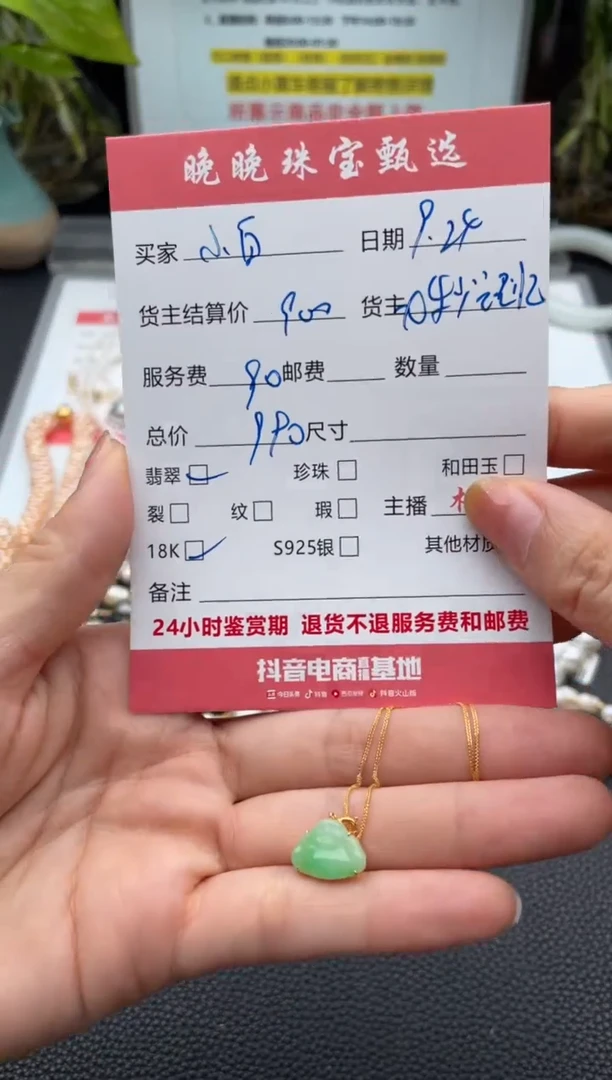 晚晚珠宝甄选
买家 小白 日期 9.24
货主结算价 900 货主
服务费 90 邮费 数量
总价 990 尺寸
翡翠 珍珠 和田玉
裂 纹 瑕 主播
18K S925银 其他材质
备注
24小时鉴赏期 退货不退服务费和邮费
抖音电商直播基地
今日头条 抖音 西瓜视频 抖音火山版